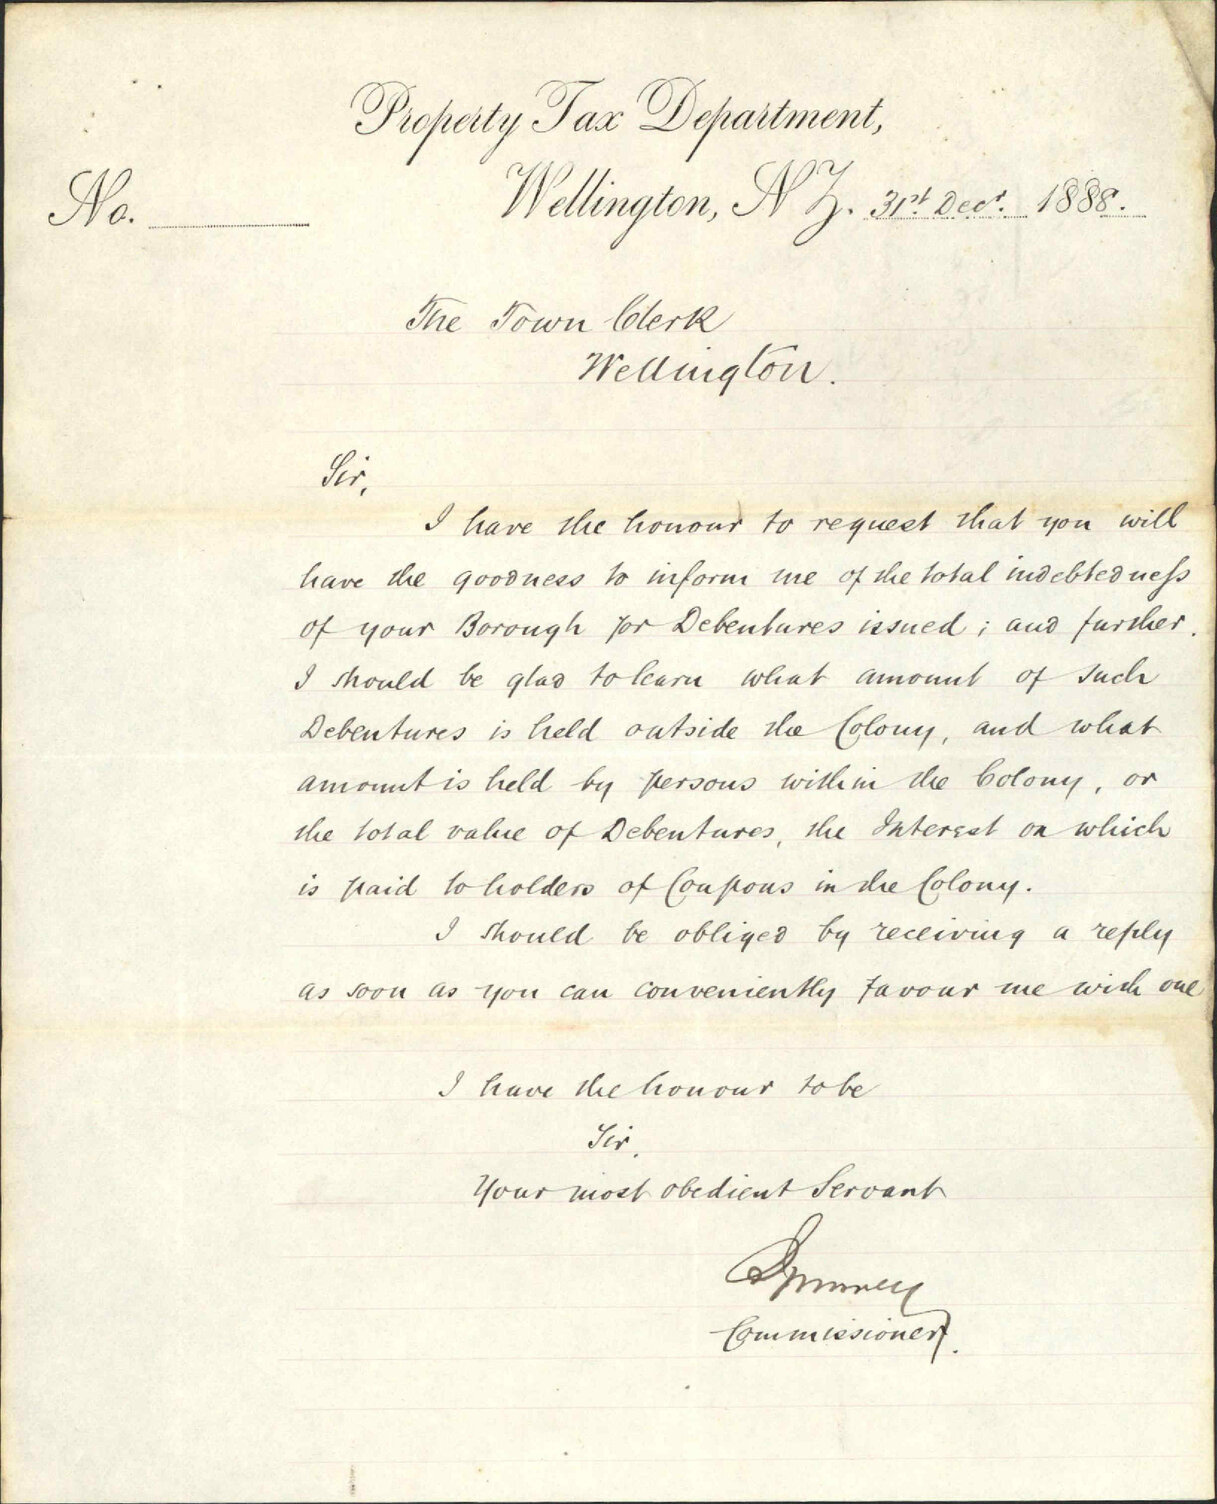 Property Tax Department,
Wellington, N Z. 31st Decr. 1888.
No.
The Town Clerk
Wellington.
Sir,
I have the honour to request that you will
have the goodness to inform me of the total indebtedness
of your Borough for Debentures issued; and further,
I should be glad to learn what amount of such
Debentures is held outside the Colony, and what
amount is held by persons within the Colony, or
the total value of Debentures, the Interest on which
is paid to holders of Coupons in the Colony.
I should be obliged by receiving a reply
as soon as you can conveniently favour me with one
I have the honour to be
Sir,
Your most obedient Servant
Commissioner.